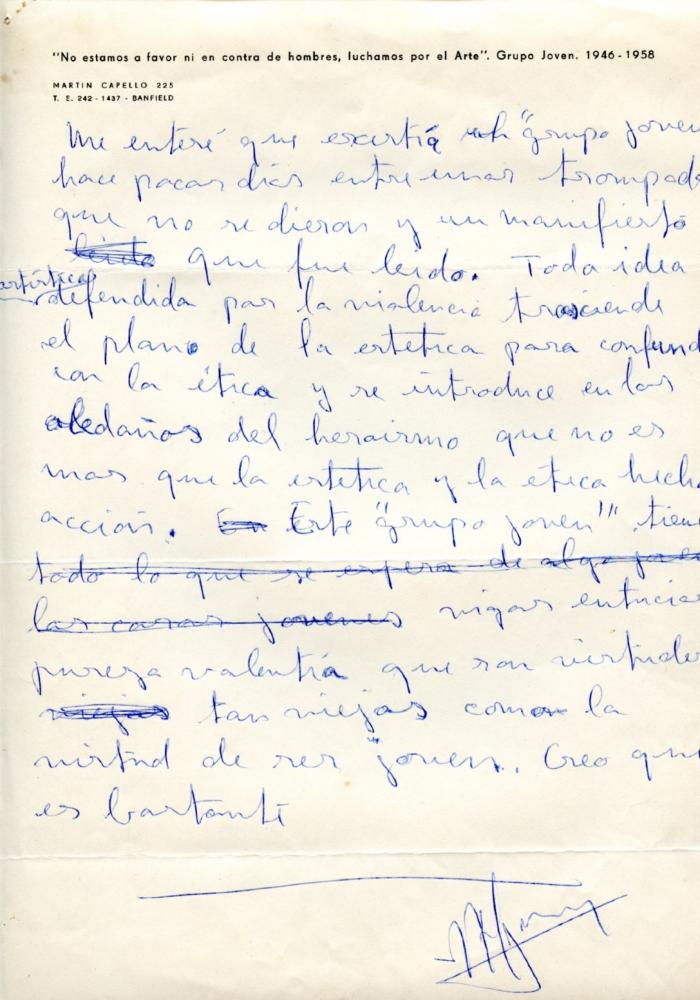 "No estamos a favor ni en contra de hombres, luchamos por el Arte". Grupo Joven. 1946-1958
MARTIN CAPELLO 225
T. E. 242 - 1437 - BANFIELD
Me enteré que existía un "grupo joven
hace pocos dias entre unas trompad
que no se dieron y un manifiesto
leido que fue leido. Toda idea
artística
defendida por la violencia trasciende
el plano de la estetica para confund
con la ética y se introduce en los
aledaños del heroismo que no es
mas que la estetica y la etica hech
acción. En Este "grupo joven" tien
todo lo que se espera de algo jo
las caras jovenes vigor entucias
pureza valentía que son virtude
viejas tan viejas como la
virtud de ser "joven. Creo que
es bastante